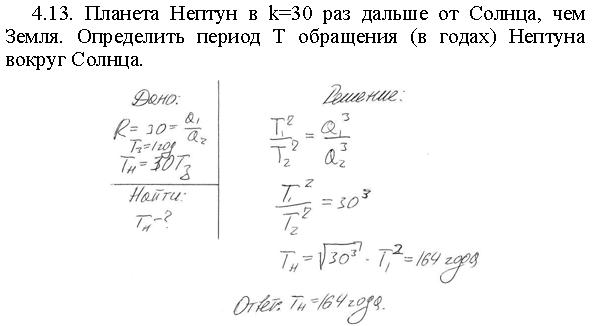 4.13. Планета Нептун в k=30 раз дальше от Солнца, чем
Земля. Определить период T обращения (в годах) Нептуна
вокруг Солнца.
Дано:
R = 30 = Q₁/Q₂
T₃=1год
Tн = 30T₃
Найти:
Tн-?
Решение:
T₁²/T₂² = Q₁³/Q₂³
T₁²/T₂² = 30³
Tн = √30³ · T₁² = 164 года
Ответ: Tн = 164 года.